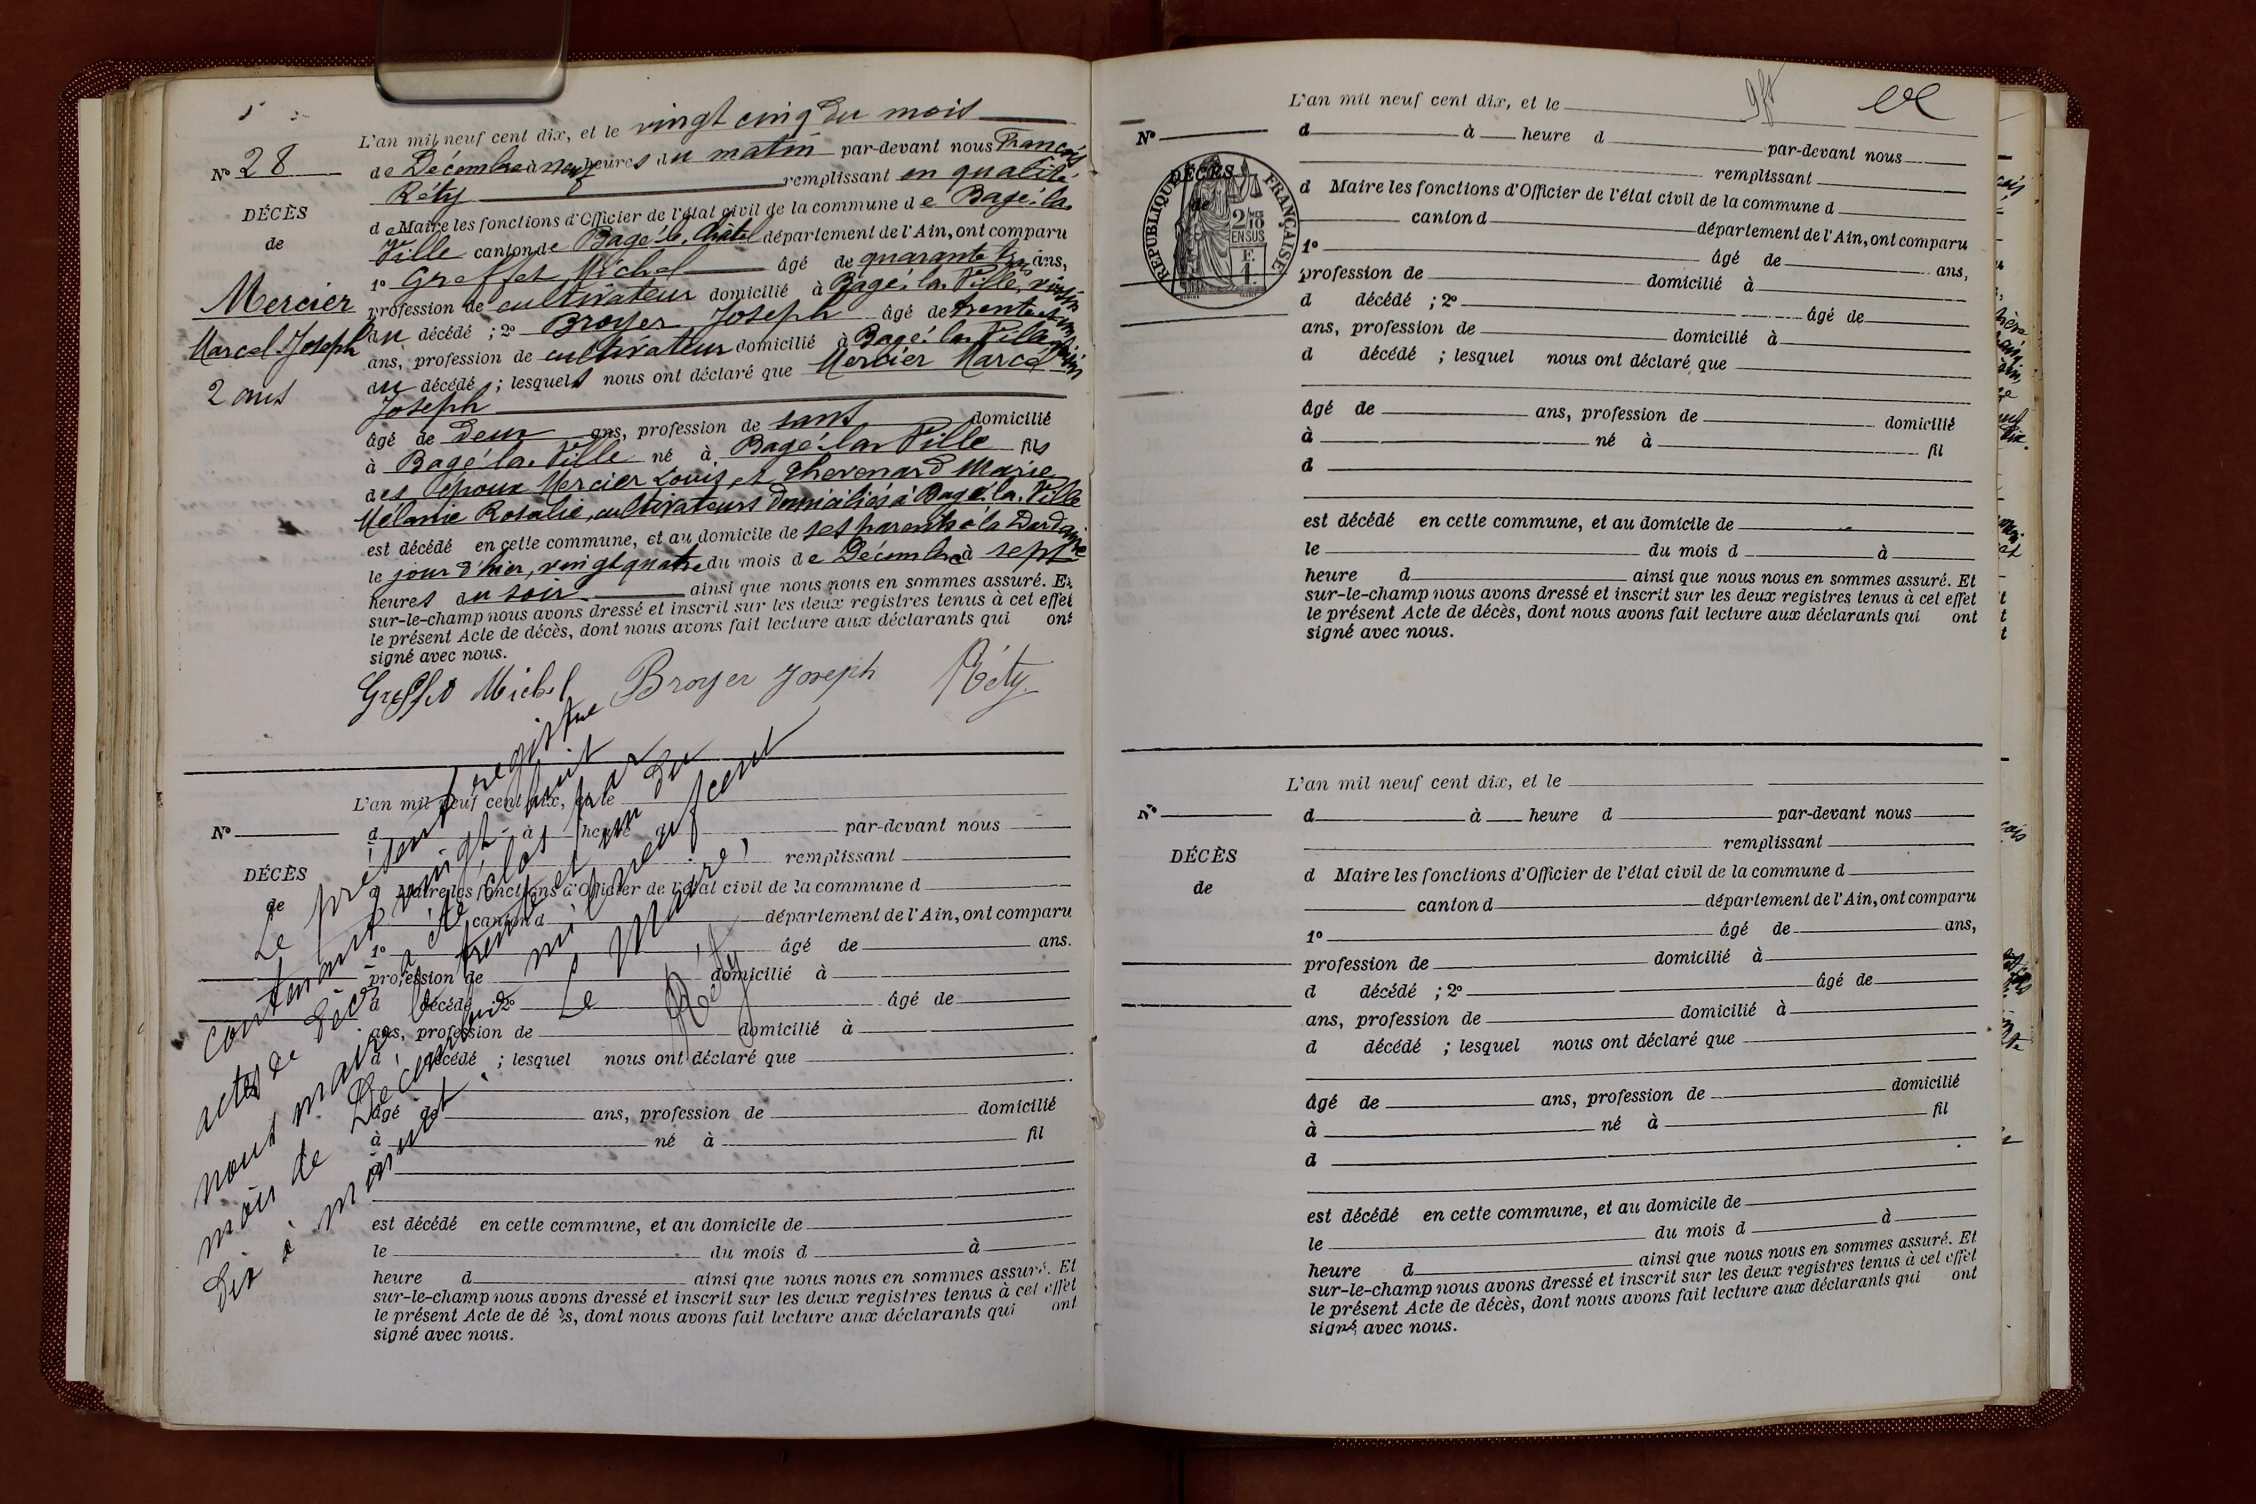 L'an mil neuf cent dix, et le vingt cinq du mois
N° 28
de Décembre à neuf heures du matin par-devant nous François
Réty remplissant en qualité
DÉCÈS
de Maire les fonctions d'Officier de l'état civil de la commune de Bagé-la-
de
Ville canton de Bagé-le-Châtel département de l'Ain, ont comparu
1° Greffet Michel âgé de quarante trois ans,
Mercier
profession de cultivateur domicilié à Bagé-la-Ville, voisin
Marcel Joseph
du décédé ; 2° Broyer Joseph âgé de trente et un
ans, profession de cultivateur domicilié à Bagé-la-Ville voisin
2 ans
du décédé ; lesquels nous ont déclaré que Mercier Marcel
Joseph
âgé de deux ans, profession de sans domicilié
à Bagé-la-Ville né à Bagé-la-Ville fils
des époux Mercier Louis et Thevenard Marie
Mélanie Rosalie, cultivateurs domiciliés à Bagé-la-Ville
est décédé en cette commune, et au domicile de ses parents à la
le jour d'hier, vingt quatre du mois de Décembre à sept
heures du soir ainsi que nous nous en sommes assuré. Et
sur-le-champ nous avons dressé et inscrit sur les deux registres tenus à cet effet
le présent Acte de décès, dont nous avons fait lecture aux déclarants qui ont
signé avec nous.
Greffet Michel Broyer Joseph Réty
L'an mil neuf cent dix, et le
N°
d à heure d par-devant nous
remplissant
DÉCÈS
d Maire les fonctions d'Officier de l'état civil de la commune d
de
canton d département de l'Ain, ont comparu
1° âgé de ans.
profession de domicilié à
d décédé ; 2° âgé de
ans, profession de domicilié à
d décédé ; lesquel nous ont déclaré que
âgé de ans, profession de domicilié
à né à fil
d
est décédé en cette commune, et au domicile de
le du mois d à
heure d ainsi que nous nous en sommes assuré. Et
sur-le-champ nous avons dressé et inscrit sur les deux registres tenus à cet effet
le présent Acte de décès, dont nous avons fait lecture aux déclarants qui ont
signé avec nous.
Le présent registre
contenant vingt-huit
actes de décès a été clos par
nous maire le trente et un du
mois de Décembre mil neuf cent
dix à minuit.
Le Maire,
Réty
L'an mil neuf cent dix, et le
N°
d à heure d par-devant nous
remplissant
DÉCÈS
de
RÉPUBLIQUE FRANÇAISE
2/10
EN SUS
d Maire les fonctions d'Officier de l'état civil de la commune d
canton d département de l'Ain, ont comparu
1° âgé de ans,
profession de domicilié à
d décédé ; 2° âgé de
ans, profession de domicilié à
d décédé ; lesquel nous ont déclaré que
âgé de ans, profession de domicilié
à né à fil
d
est décédé en cette commune, et au domicile de
le du mois d à
heure d ainsi que nous nous en sommes assuré. Et
sur-le-champ nous avons dressé et inscrit sur les deux registres tenus à cet effet
le présent Acte de décès, dont nous avons fait lecture aux déclarants qui ont
signé avec nous.
L'an mil neuf cent dix, et le
N°
d à heure d par-devant nous
remplissant
DÉCÈS
d Maire les fonctions d'Officier de l'état civil de la commune d
de
canton d département de l'Ain, ont comparu
1° âgé de ans,
profession de domicilié à
d décédé ; 2° âgé de
ans, profession de domicilié à
d décédé ; lesquel nous ont déclaré que
âgé de ans, profession de domicilié
à né à fil
d
est décédé en cette commune, et au domicile de
le du mois d à
heure d ainsi que nous nous en sommes assuré. Et
sur-le-champ nous avons dressé et inscrit sur les deux registres tenus à cet effet
le présent Acte de décès, dont nous avons fait lecture aux déclarants qui ont
signé avec nous.